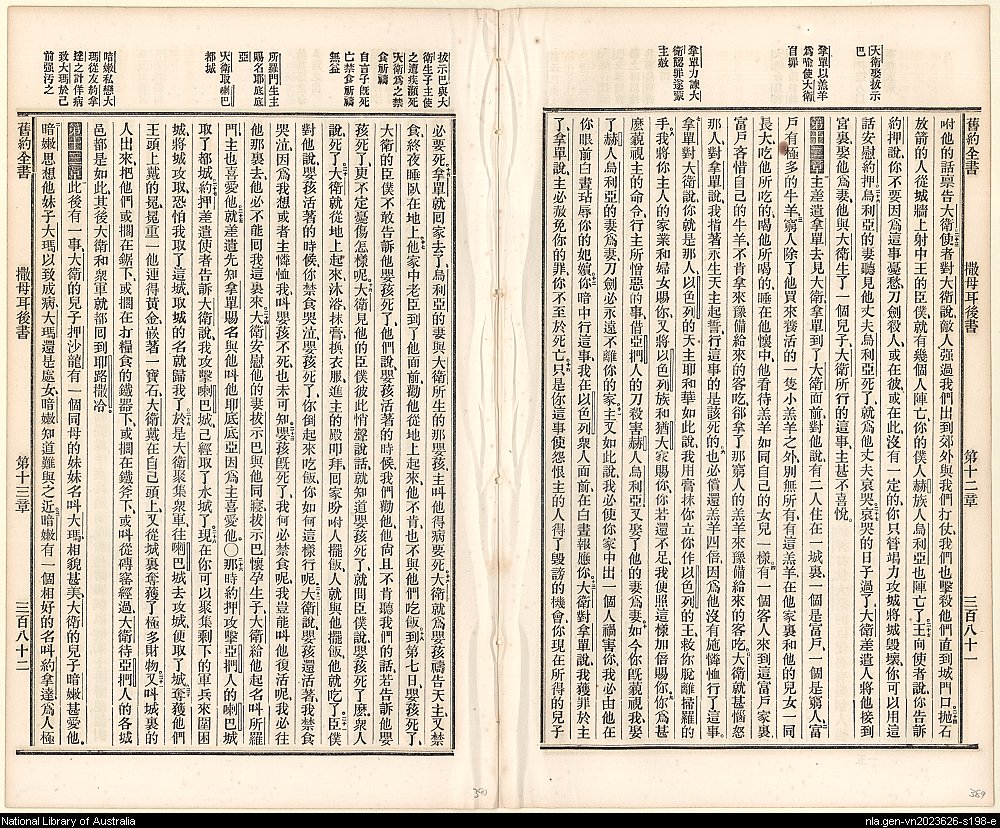 大衛娶拔示
巴
拿單以羔羊
爲喻使大衛
自罪
拿單力諫大
衛認罪遂蒙
主赦
舊約全書 撒母耳後書 第十二章 三百八十一
咐他的話禀告大衛使者對大衛說、敵人强過我們、出到郊外與我們打仗、我們也擊殺他們、直到城門口抛石
放箭的人從城牆上射中王的臣僕、就有幾個人陣亡、你的僕人赫族人烏利亞也陣亡了、王向使者說、你告訴
約押說、你不要因爲這事憂愁、刀劍殺人、或在彼或在此、沒有一定的、你只管竭力攻城將城毀壞、你可以用這
話安慰約押、烏利亞的妻聽見他丈夫烏利亞死了、就爲他丈夫哀哭、哀哭的日子過了、大衛差遣人將他接到
宮裏娶他爲妻、他與大衛生了一個兒子、大衛所行的這事、主甚不喜悅。
第十二章 主差遣拿單去見大衛、拿單到了大衛面前對他說、有二人住在一城裏、一個是富戶、一個是窮人、富
戶有極多的牛羊、窮人除了他買來養活的一隻小羔羊之外、別無所有、有這羔羊在他家裏和他的兒女一同
長大、吃他所吃的、喝他所喝的、睡在他懷中、他看待羔羊如同自己的女兒一樣、有一個客人來到這富戶家裏、
富戶吝惜自己的牛羊、不肯拿來豫備給來的客吃、卻拿了那窮人的羔羊來豫備給來的客吃、大衛就甚惱怒
那人、對拿單說、我指著永生天主起誓、行這事的是該死的、也必償還羔羊四倍、因爲他沒有施憐恤、行了這事。
拿單對大衛說、你就是那人、以色列的天主耶和華如此說、我用膏抹你立你作以色列的王、救你脫離掃羅的
手、我將你主人的家業和婦女賜你、又將以色列族和猶大家賜你、你若還不足、我便照這樣加倍賜你、你爲甚
麼藐視主的命令、行主所憎惡的事、借亞捫人的刀殺害赫人烏利亞、又娶了他的妻爲妻、如今你旣藐視我、娶
了赫人烏利亞的妻爲妻、刀劍必永遠不離你的家、主又如此說、我必使你家中出一個人禍害你、我必由他在
你眼前白晝玷辱你的妃嬪、你暗中行這事、我在以色列衆人面前、在白晝報應你、大衛對拿單說、我獲罪於主
了、拿單說、主必赦免你的罪、你不至於死亡、只是你這事使怨恨主的人得了毀謗的機會、你現在所得的兒子
拔示巴與大
衛生子主使
之遭疾瀕死
大衛爲之禁
食祈禱
自言子旣死
亡禁食祈禱
無益
所羅門生主
賜名耶底底
亞
大衛取喇巴
都城
暗嫩私戀大
瑪從友約拿
達之計佯病
致大瑪於己
前强汚之
必要死、拿單就回家去了、烏利亞的妻與大衛所生的那嬰孩、主叫他得病要死、大衛就爲嬰孩禱告天主、又禁
食終夜睡臥在地上、他家中老臣到了他面前、勸他從地上起來、他不肯、也不與他們吃飯、到第七日嬰孩死了、
大衛的臣僕不敢告訴他嬰孩死了、他們說、嬰孩活著的時候、我們勸他、他尚且不肯聽我們的話、若告訴他嬰
孩死了、更不定憂傷怎樣呢、大衛見他的臣僕彼此悄聲說話、就知道嬰孩死了、就問臣僕說、嬰孩死了麼、衆人
說、死了、大衛就從地上起來、沐浴抹膏換衣服、進主的殿叩拜、回家吩咐人擺飯、人就與他擺飯、他就吃了、臣僕
對他說、嬰孩活著的時候、你禁食哭泣、嬰孩死了、你倒起來吃飯、你如何這樣行呢、大衛說、嬰孩還活著、我禁食
哭泣、因爲我想或者主憐恤我、叫嬰孩不死也未可知、嬰孩旣死了、我何必禁食呢、我豈能叫他復活呢、我必往
他那裏去、他必不能回我這裏來、大衛安慰他的妻拔示巴、與他同寢、拔示巴懷孕生子、大衛給他起名叫所羅
門、主也喜愛他、就差遣先知拿單賜名與他叫他耶底底亞、因爲主喜愛他。○那時約押攻擊亞捫人的喇巴城
取了都城、約押差遣使者告訴大衛說、我攻擊喇巴城、已經取了水城了、現在你可以聚集剩下的軍兵來圍困
城、將城攻取、恐怕我取了這城、取城的名就歸我了、於是大衛聚集衆軍、往喇巴城去攻城、便取了城、奪獲他們
王頭上戴的冕、冕重一他連得黃金、嵌著一寶石、大衛戴在自己頭上、又從城裏奪獲了極多財物、又叫城裏的
人出來、把他們或擱在鋸下、或擱在打糧食的鐵器下、或擱在鐵斧下、或叫從磚窰經過、大衛待亞捫人的各城
邑都是如此、其後大衛和衆軍就都回到耶路撒冷。
第十三章 此後有一事、大衛的兒子押沙龍有一個同母的妹妹名叫大瑪、相貌甚美、大衛的兒子暗嫩甚愛他、
暗嫩思想他妹子大瑪以致成病、大瑪還是處女、暗嫩知道難與之近、暗嫩有一個相好的名叫約拿達、爲人極
舊約全書 撒母耳後書 第十三章 三百八十二
390
389
National Library of Australia
nla.gen-vn2023626-s198-e